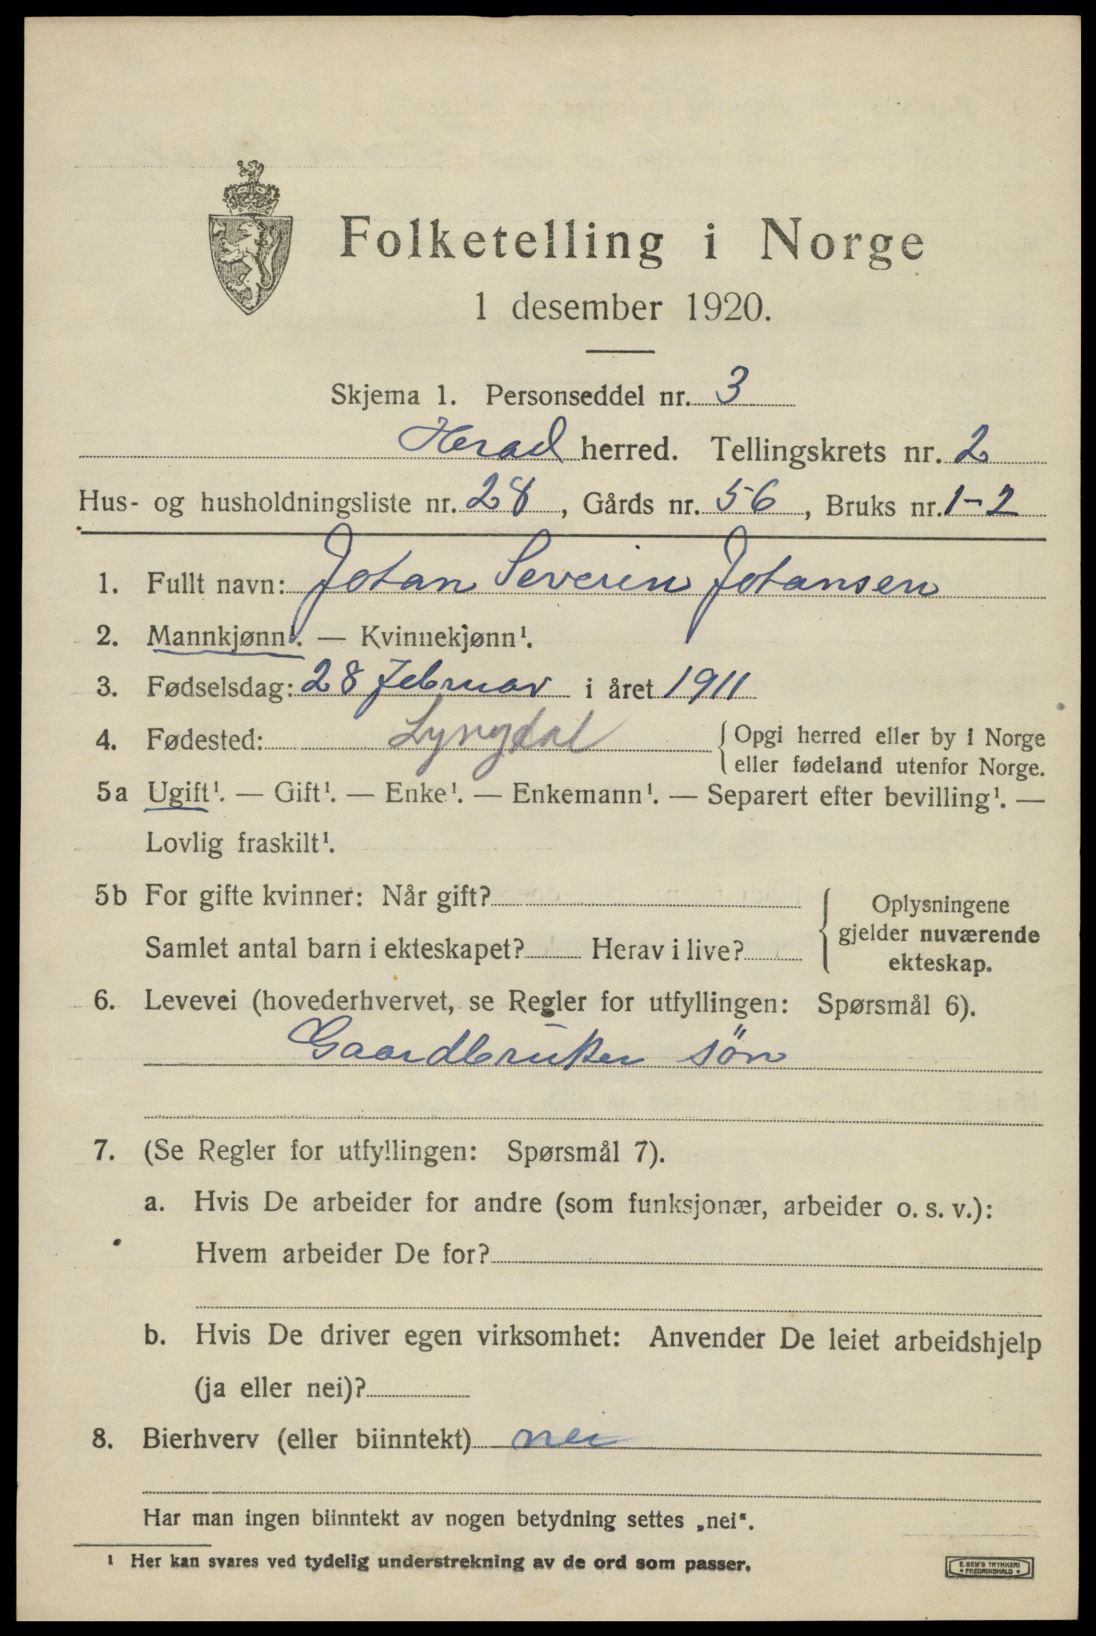 Folketelling i Norge
1 desember 1920.
Skjema 1. Personseddel nr. 3
Herad herred. Tellingskrets nr. 2
Hus- og husholdningsliste nr. 28, Gårds nr. 56, Bruks nr. 1-2
1. Fullt navn: Johan Severin Johansen
2. Mannkjønn¹. — Kvinnekjønn¹.
3. Fødselsdag: 28 februar i året 1911
4. Fødested: Lyngdal {Opgi herred eller by i Norge
eller fødeland utenfor Norge.
5a Ugift¹. — Gift¹. — Enke¹. — Enkemann¹. — Separert efter bevilling¹. —
Lovlig fraskilt¹.
5b For gifte kvinner: Når gift?
Samlet antal barn i ekteskapet? Herav i live?
{Oplysningene
gjelder nuværende
ekteskap.
6. Levevei (hovederhvervet, se Regler for utfyllingen: Spørsmål 6).
Gaardbruker søn
7. (Se Regler for utfyllingen: Spørsmål 7).
a. Hvis De arbeider for andre (som funksjonær, arbeider o. s. v.):
Hvem arbeider De for?
b. Hvis De driver egen virksomhet: Anvender De leiet arbeidshjelp
(ja eller nei)?
8. Bierhverv (eller biinntekt) nei
Har man ingen biinntekt av nogen betydning settes „nei“.
¹ Her kan svares ved tydelig understrekning av de ord som passer.
E. SEM'S TRYKKERI
FREDRIKSHALD